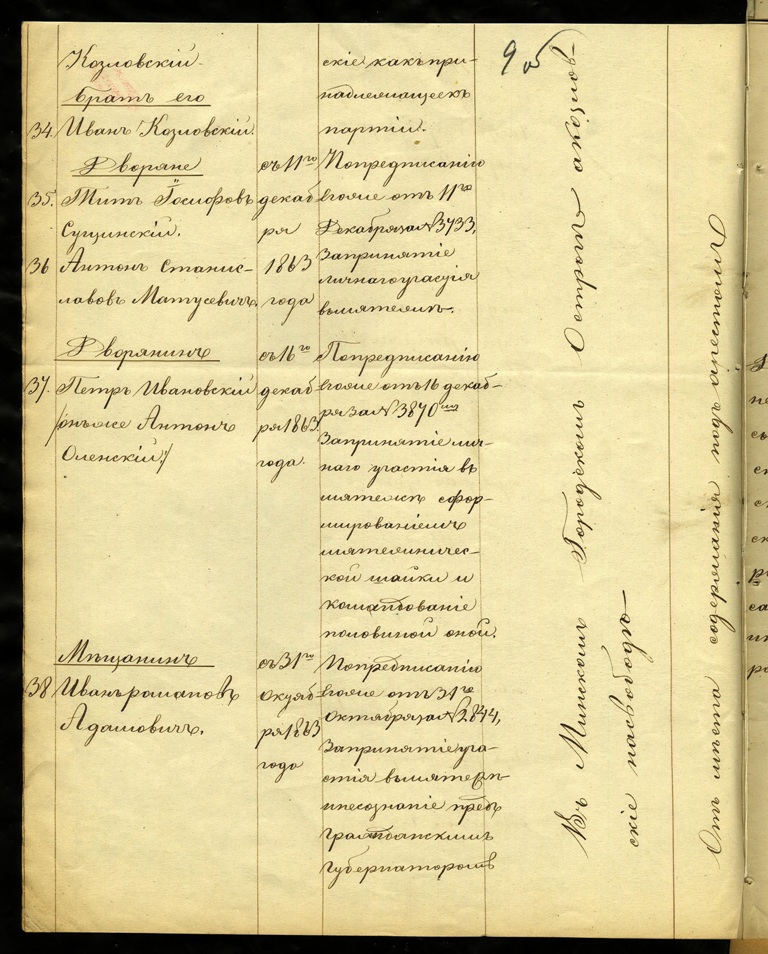 Козловскій.
братъ его
34. Иванъ Козловскій.
Дворяне
35. Титъ Іосифовъ
Сущинскій.
36 Антонъ Станис-
лавовъ Матусевичъ.
Дворянинъ
37. Петръ Ивановскій
/онъ же Антонъ
Оленскій/
Мѣщанинъ
38 Иванъ Романовъ
Адамовичъ.
съ 11го
декаб-
ря
1863
года
съ 16го
декаб-
ря 1863
года.
съ 31го
Октяб-
ря 1863
года
скіе какъ при-
надлежащее къ
партіи.
По предписанію
его же отъ 11го
Декабря за № 3733,
За принятіе
личнаго участія
въ мятежѣ.
По предписанію
его же отъ 16 декаб-
ря за № 3870
За принятіе лич-
наго участія въ
мятежѣ сфор-
мированіемъ
мятежничес-
кой шайки и
командованіе
половиной оной.
По предписанію
его же отъ 31го
Октября за № 2844,
За принятіе уча-
стія въ мятежѣ
и несознаніе предъ
Гражданскимъ
Губернаторомъ
9 об
Въ Минскомъ Городскомъ Острогѣ а козлов-
скіе на свободѣ
Отъ мѣста содержанія подъ арестомъ